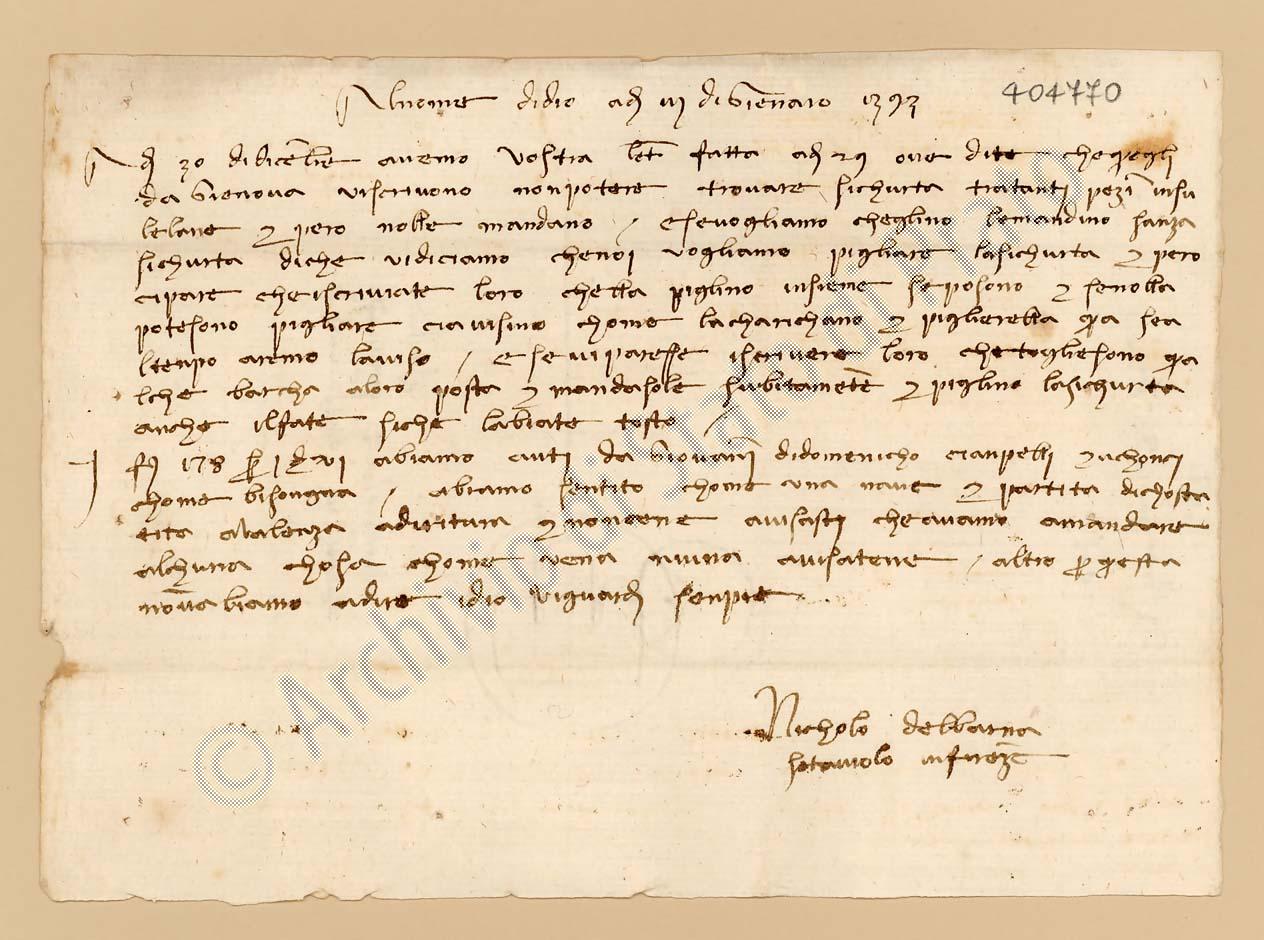 Al nome di dio adi iij di Giennaro 1393
404770
Adi 30 di dicenbre avemo vostra lett fatta adi 29 ove dite che quegli
da Gienova vi scrivono non potere trovare sichurta tratanti pezi insu
le lane e pero nolle mandano / e se vogliamo che glino le mandino sanza
sichurta di che vi diciamo che noi vogliamo pigliare la sichurta e pero
ci pare che iscriviate loro chella piglino insieme se posono e se nolla
potesono pigliare ci avisino chome la charichano e piglierella qua se a
ltenpo aremo laviso / e se vi paresse iscrivere loro che togliesono qua
lche barcha a loro posta e mandasole subitamete e piglino la sichurta
anche il fate siche labiate tosto /
178 abiamo auti da Giovani di domenicho cianpelli
chome bisongna / abiamo sentito chome una nave e partita di chosta
a valenza a diritura e non cene avisasti che avamo a mandare
alchuna chosa chome vena niuna avisatene / altro per questa
nonn abiamo a dire idio vi guardi senpre
Nicholo del
setaiuolo in firenze
© Archivio di Stato di Prato